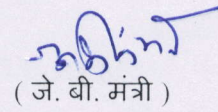 ( जे. बी. मंत्री )